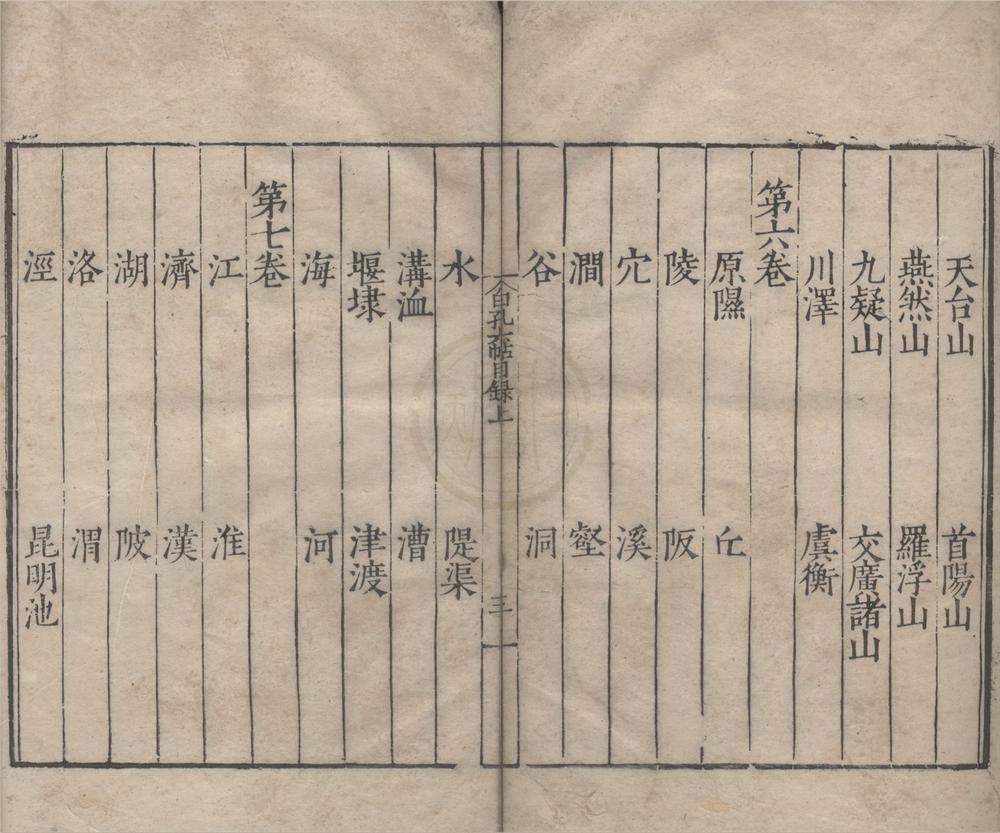 天台山 首陽山
燕然山 羅浮山
九疑山 交廣諸山
川澤 虞衡
第六卷
原隰 丘
陵 阪
穴 溪
澗 壑
谷 洞
白孔六帖目録上 三
水 隄渠
溝洫 漕
堰埭 津渡
海 河
第七卷
江 淮
濟 漢
湖 陂
洛 渭
涇 昆明池